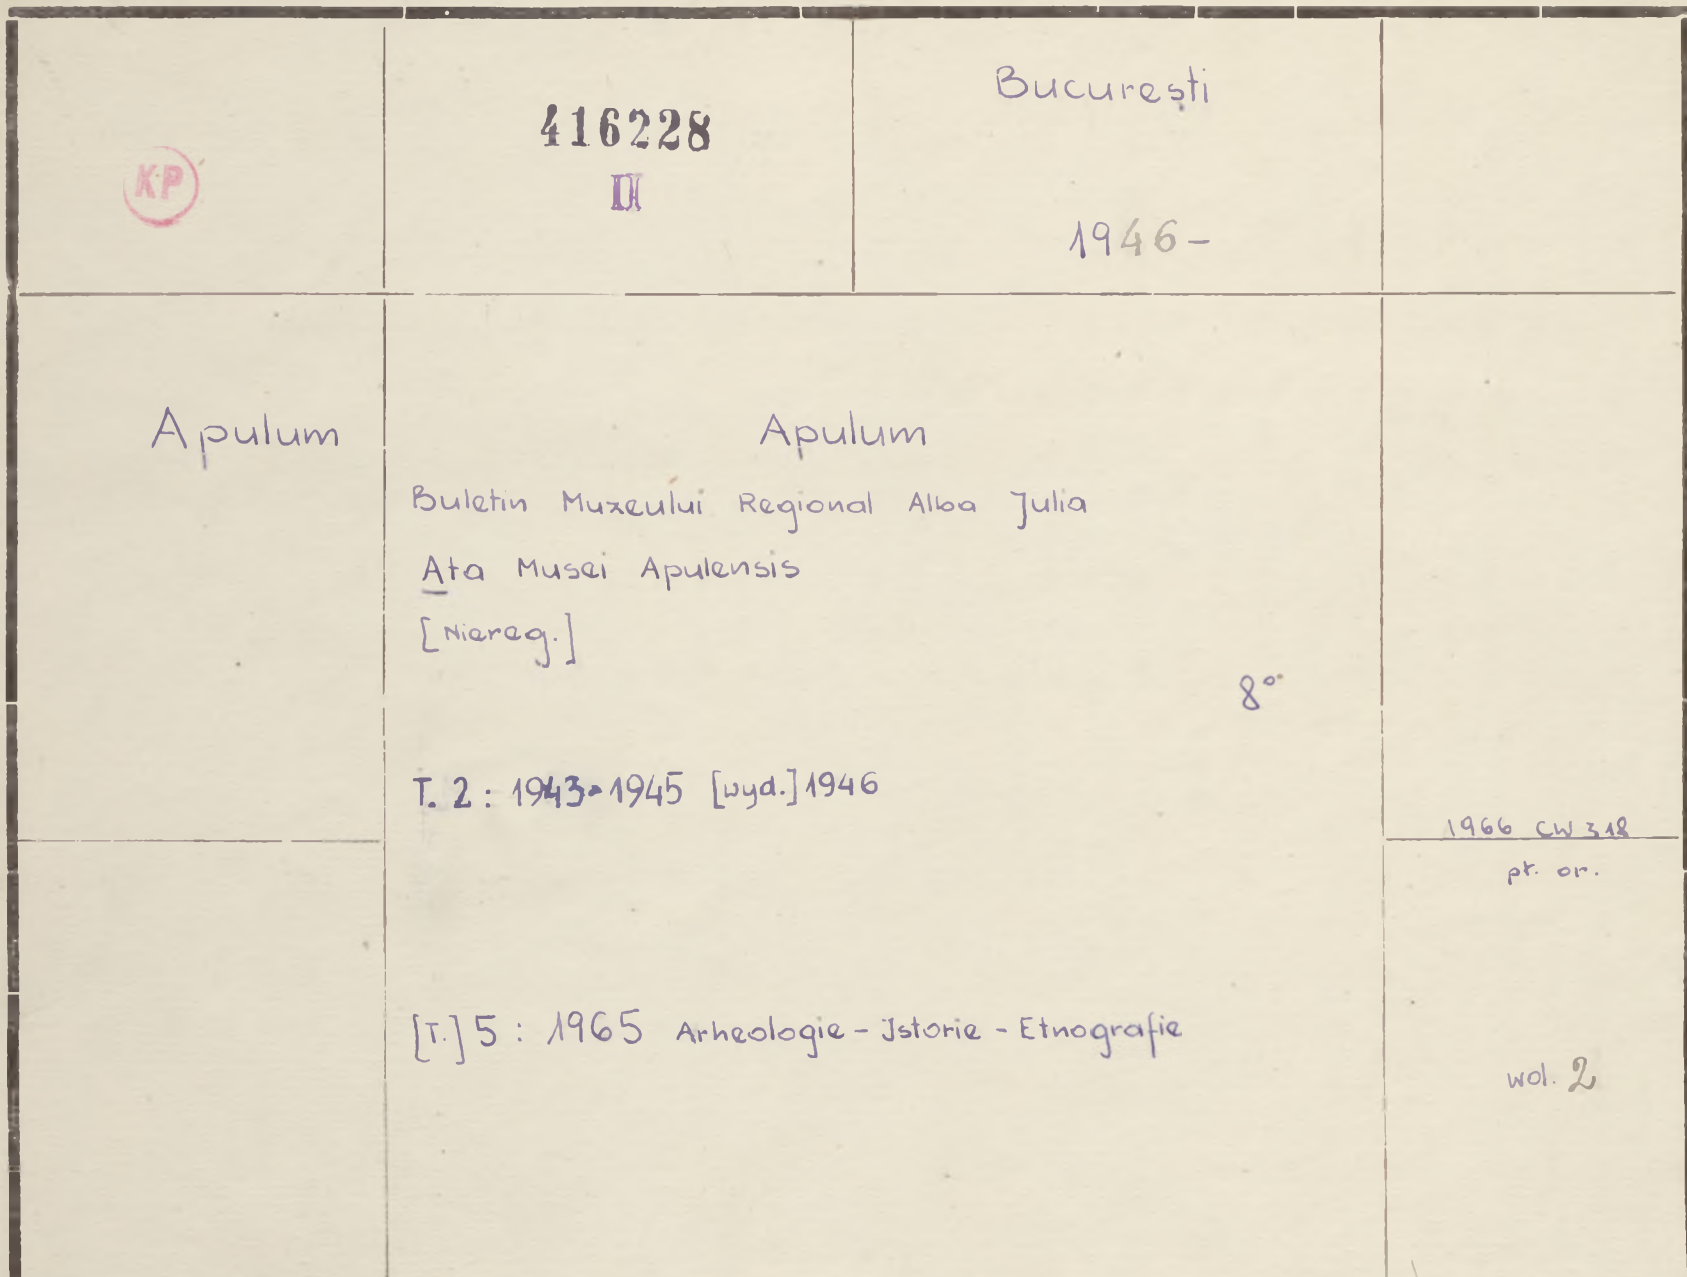 KP
416228
II
Bucureşti
1946-
Apulum
Apulum
Buletin Muzeului Regional Alba Julia
Ata Musei Apulensis
[Niereg.]
8°
T. 2 : 1943-1945 [wyd.] 1946
1966 CW 318
pt. or.
[T.] 5 : 1965 Arheologie - Istorie - Etnografie
wol. 2